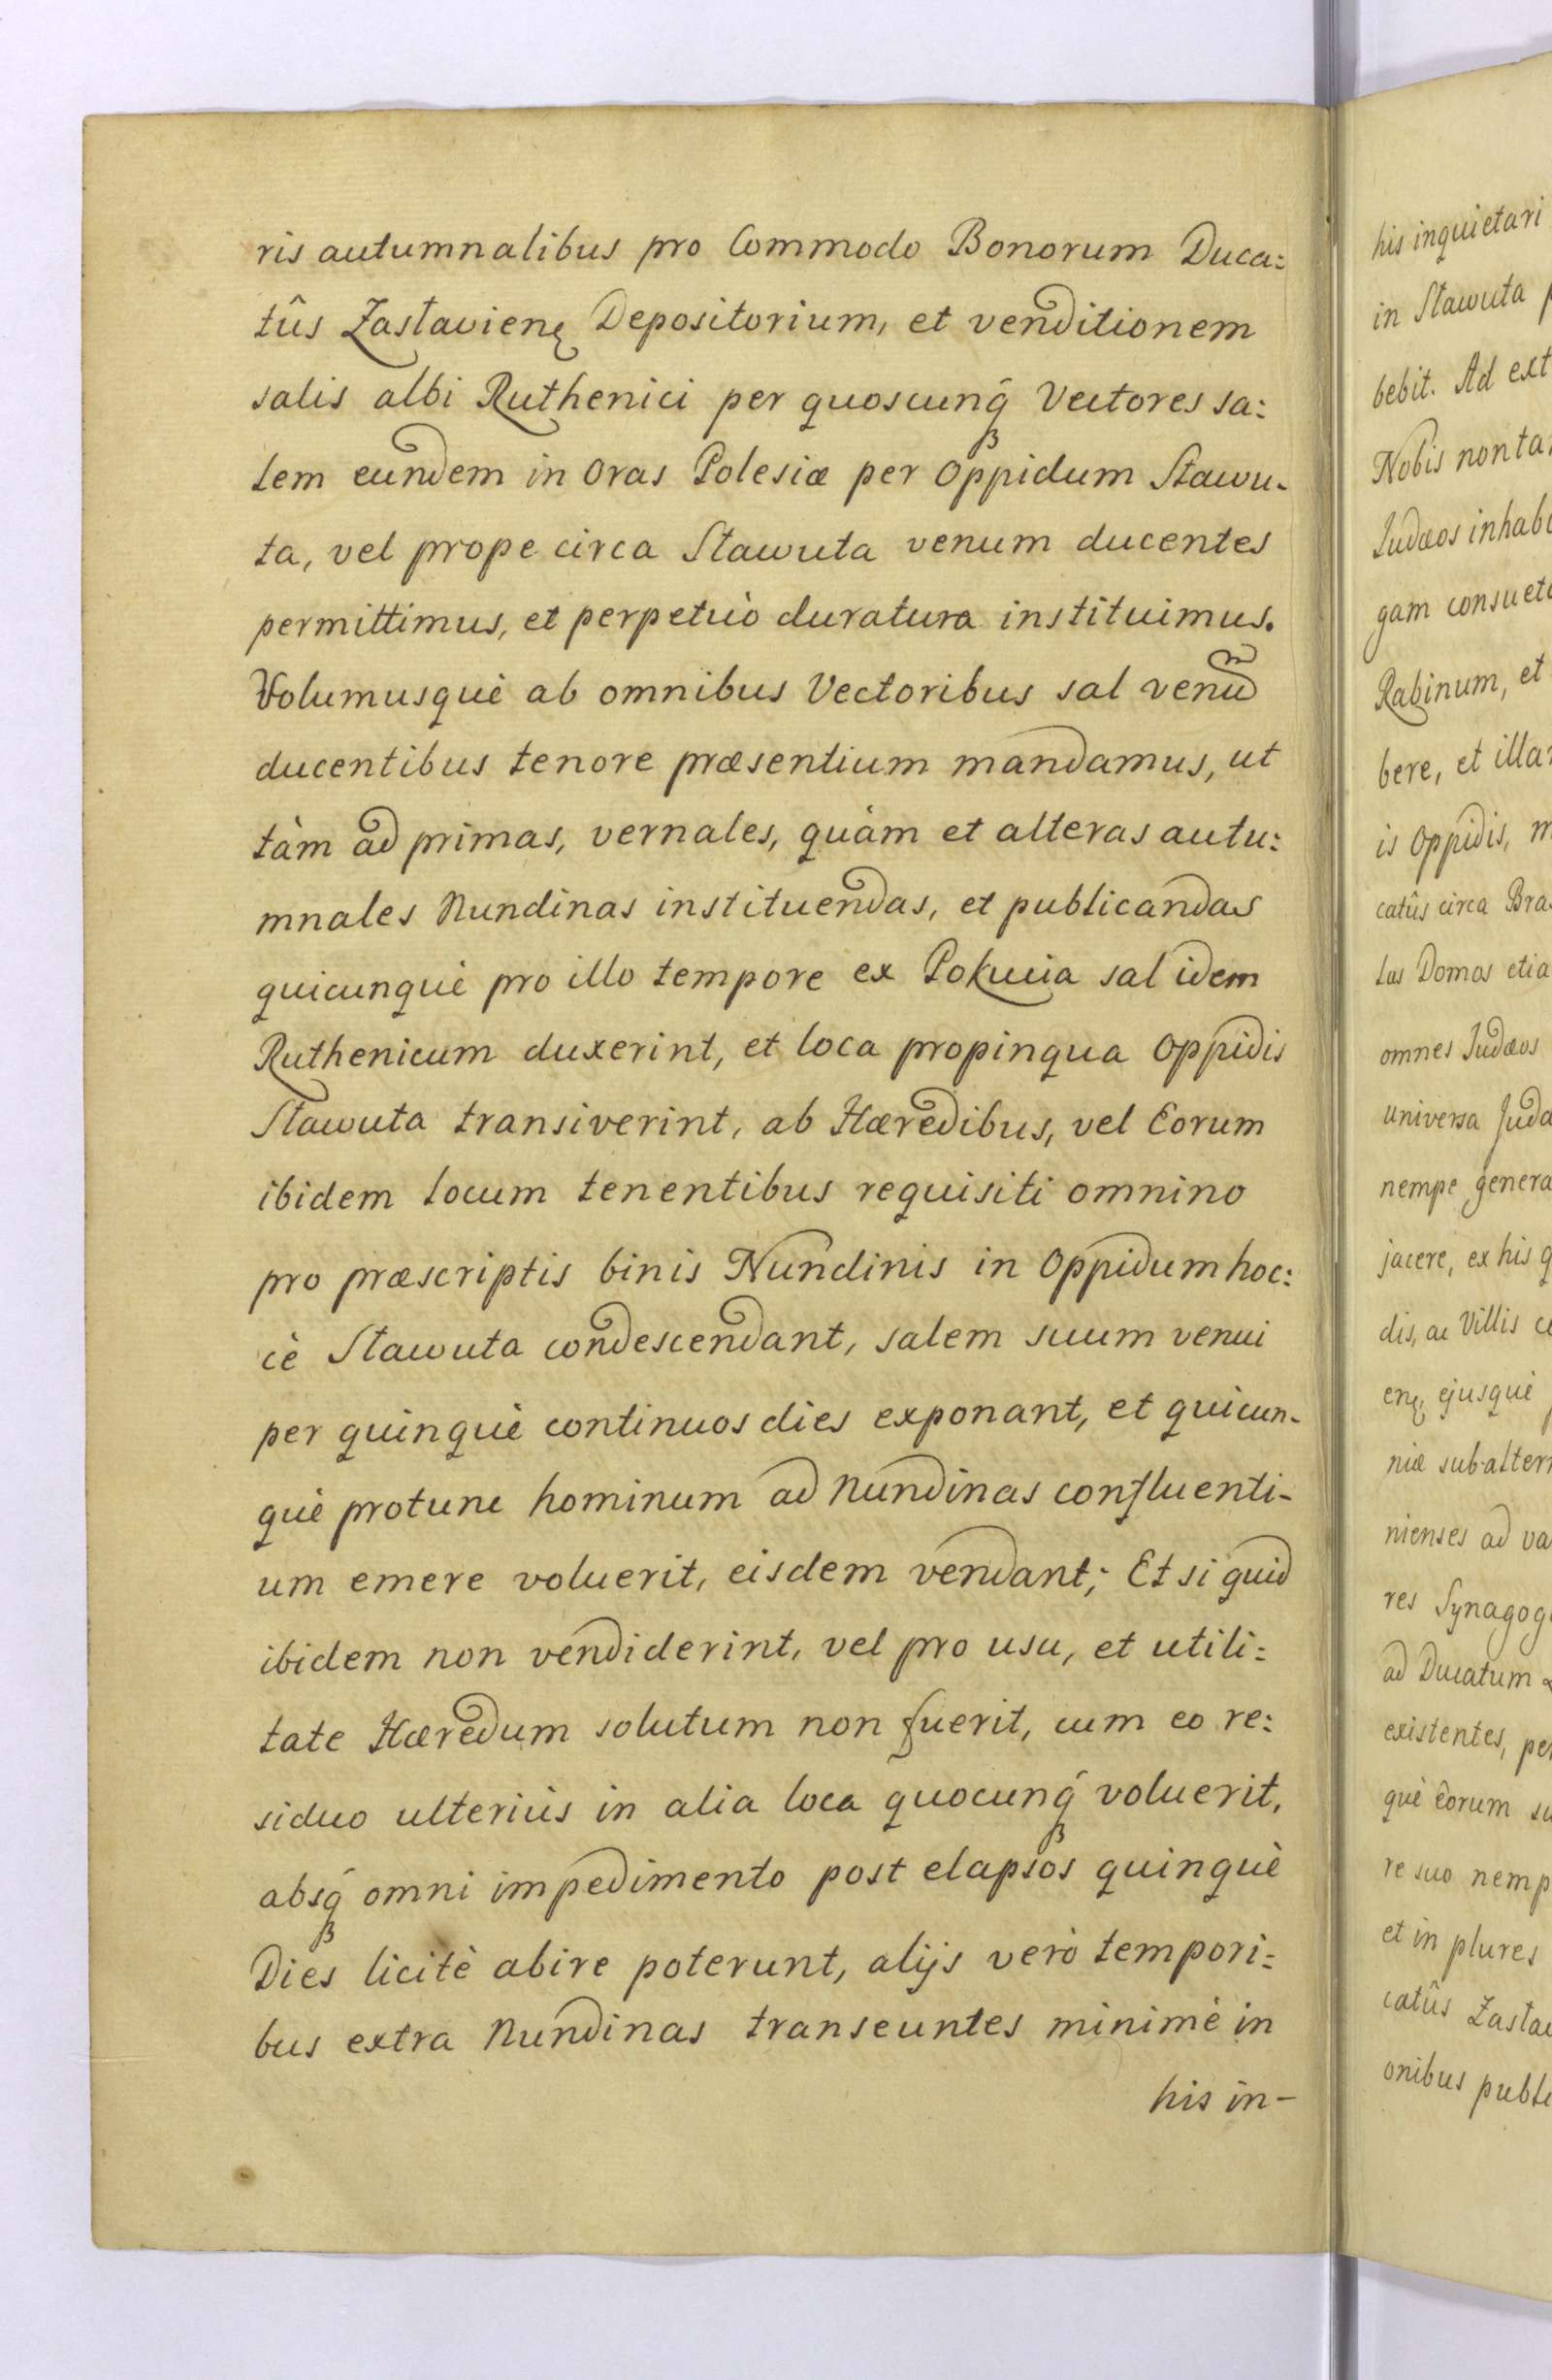 ris autumnalibus pro Commodo Bonorum Duca:
tûs Zaslavienę Depositorium, et venditionem
salis albi Ruthenici per quoscunq́ꝫ Vectores sa:
lem eundem in Oras Polesiæ per Oppidum Sławu-
ta, vel prope circa Sławuta venum ducentes
permittimus, et perpetuò duratura instituimus.
Volumusquè ab omnibus Vectoribus sal venum̃
ducentibus tenore præsentium mandamus, ut
tàm ad primas, vernales, quàm et alteras autu:
mnales Nundinas instituendas, et publicandas
quicunquè pro illo tempore ex Pokucia sal idem
Ruthenicum duxerint, et loca propinqua Oppidis
Sławuta transiverint, ab Hæredibus, vel Eorum
ibidem locum tenentibus requisiti omnino
pro præscriptis binis Nundinis in Oppidum hoc:
cè Sławuta condescendant, salem suum venui
per quinquè continuos dies exponant, et quicun-
què protunc hominum ad Nundinas confluenti-
um emere voluerit, eisdem vendant; Et si quid
ibidem non vendiderint, vel pro usu, et utili:
tate Hæredum solutum non fuerit, cum eo re:
siduo ulteriùs in alia loca quocunq́ꝫ voluerit,
absq́ꝫ omni impedimento post elapsos quinquè
Dies licitè abire poterunt, alijs verò tempori:
bus extra Nundinas transeuntes minimè in
his in-
his inquietari
in Sławuta
bebit. Ad ext
Nobis non ta
Judæos inhab
gam consuet
Rabinum, et
bere, et illa
is Oppidis, m
catûs circa Bra
las Domos etia
omnes Judæos
universa Juda
nempe genera
jacere, ex his q
dis, ac Villis c
enę, ejusquè
niæ subaltern
nienses ad va
res Synagog
ad Ducatum
existentes, pe
què Eorum su
re suo nemp
et in plures
catûs Zasla
onibus publi